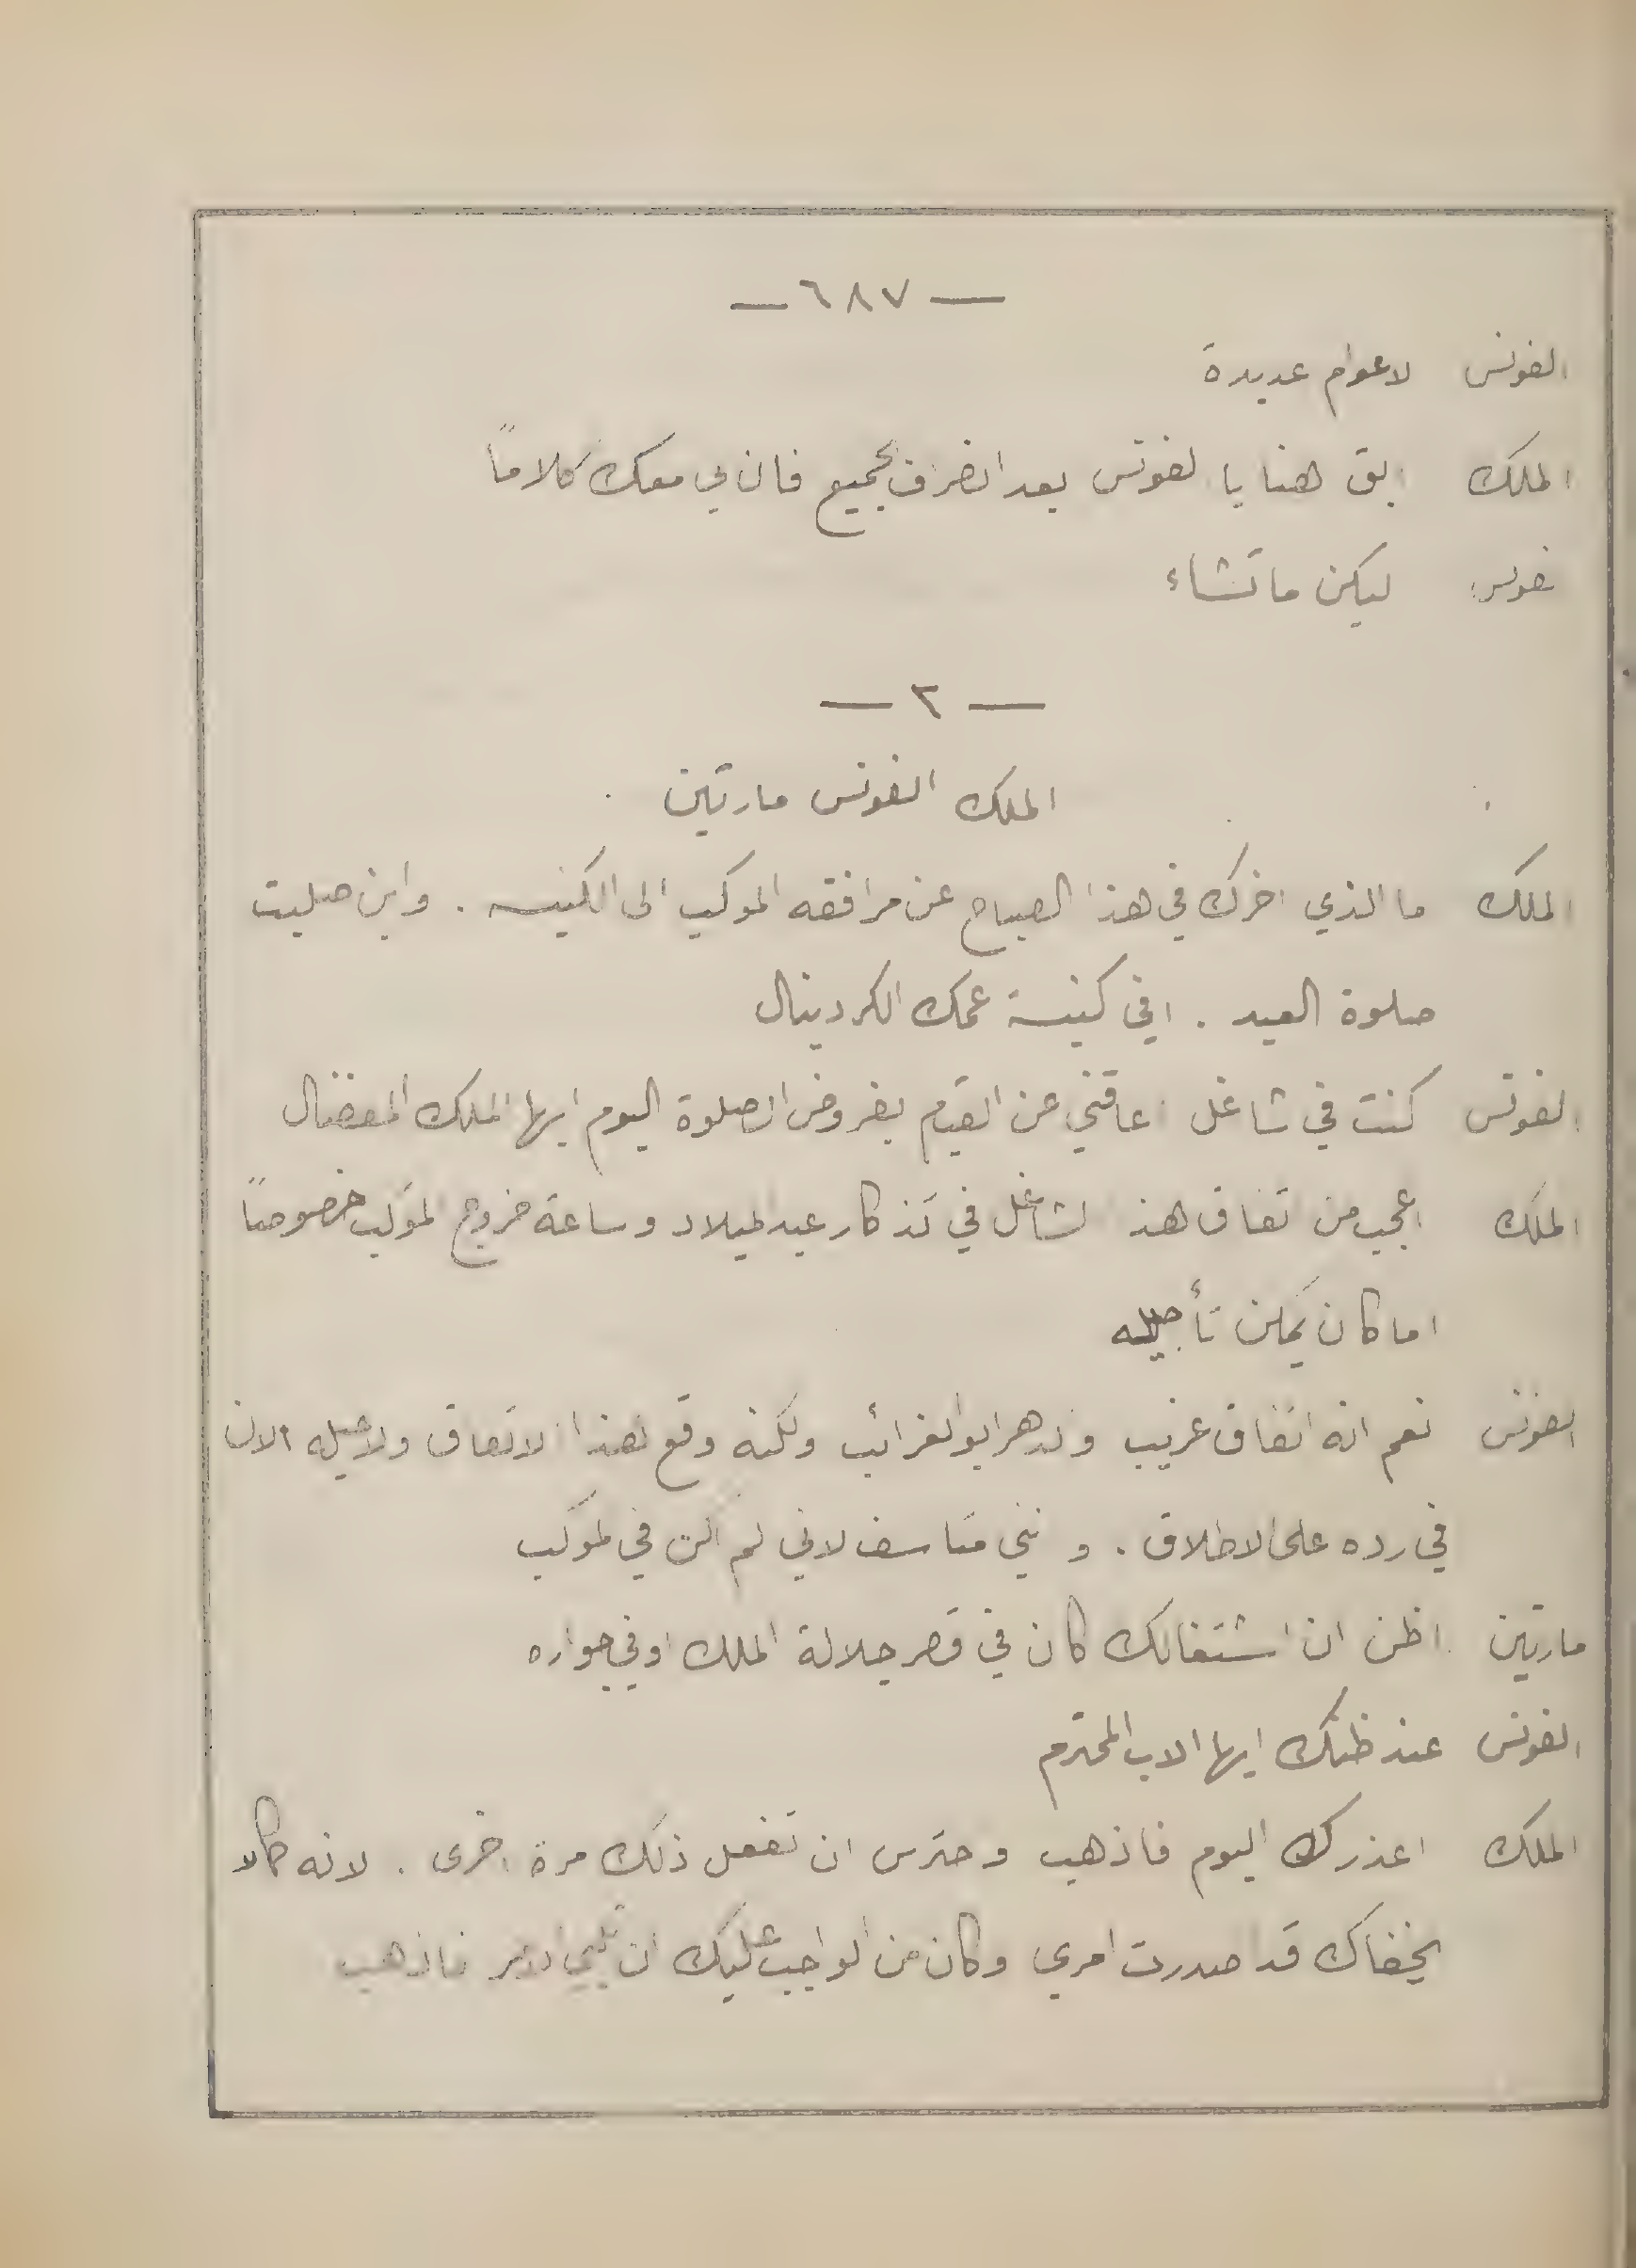 — ٦٨٧ —
الفونس لاعوام عديدة
الملك ابق هنا يا الفونس بعد انصراف الجميع فان لي معك كلاماً
الفونس ليكن ما تشاء
— ٣ —
الملك الفونس مارتين
الملك ما الذي اخرك في هذا الصباح عن مرافقه الموكب الى الكنيسه . واين صليت
صلوة العيد . افي كنيسة عمك الكردينال
الفونس كنت في شاغل اعاقني عن القيام بفروض الصلوة اليوم ايها الملك المفضال
الملك اعجب من اتفاق هذا الشاغل في تذكار عيد الميلاد وساعة خروج الموكب خصوصاً
اما كان يمكن تأجيله
الفونس نعم انه اتفاق غريب والدهر ابو الغرائب ولكنه وقع هذا الاتفاق ولا حيله الان
في رده على الاطلاق . وانني متاسف لاني لم اكن في الموكب
مارتين اظن ان اشتغالك كان في قصر جلالة الملك او في جواره
الفونس عند ظنك ايها الاب المحترم
الملك اعذرك اليوم فاذهب واحترس ان تفعل ذلك مرة اخرى . لانه كما لا
يخفاك قد اصدرت امري وكان من الواجب عليك ان تلبي الامر فاذهب